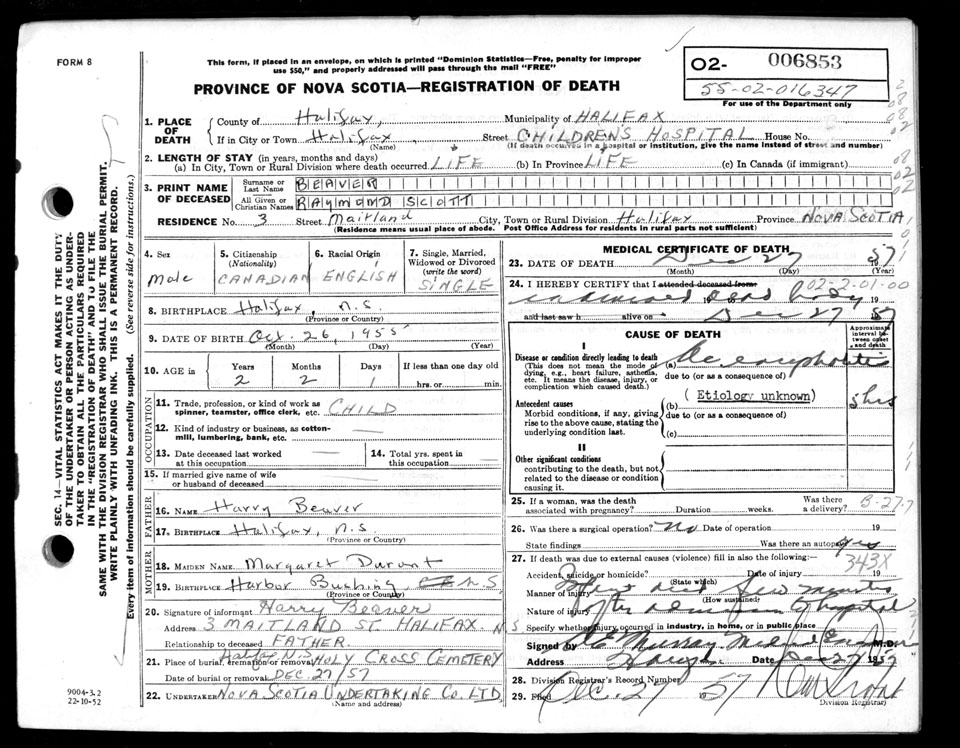 FORM 8
This form, if placed in an envelope, on which is printed "Dominion Statistics—Free, penalty for improper
use $50," and properly addressed will pass through the mail "FREE"
PROVINCE OF NOVA SCOTIA—REGISTRATION OF DEATH
02- 006853
55-02-016347
For use of the Department only
1. PLACE OF DEATH
County of Halifax, Municipality of HALIFAX
If in City or Town Halifax Street CHILDREN'S HOSPITAL House No.
(Name) (If death occurred in a hospital or institution, give the name instead of street and number)
2. LENGTH OF STAY (in years, months and days)
(a) In City, Town or Rural Division where death occurred LIFE (b) In Province LIFE (c) In Canada (if immigrant)
3. PRINT NAME OF DECEASED
Surname or Last Name BEAVER
All Given or Christian Names RAYMOND SCOTT
RESIDENCE No. 3 Street Maitland City, Town or Rural Division Halifax Province NOVA SCOTIA
(Residence means usual place of abode. Post Office Address for residents in rural parts not sufficient)
SEC. 14—VITAL STATISTICS ACT MAKES IT THE DUTY
OF THE UNDERTAKER OR PERSON ACTING AS UNDER-
TAKER TO OBTAIN ALL THE PARTICULARS REQUIRED
IN THE "REGISTRATION OF DEATH" AND TO FILE THE
SAME WITH THE DIVISION REGISTRAR WHO SHALL ISSUE THE BURIAL PERMIT.
WRITE PLAINLY WITH UNFADING INK. THIS IS A PERMANENT RECORD.
Every item of information should be carefully supplied. (See reverse side for instructions.)
4. Sex
Male
5. Citizenship
(Nationality)
CANADIAN
6. Racial Origin
ENGLISH
7. Single, Married,
Widowed or Divorced
(write the word)
SINGLE
8. BIRTHPLACE Halifax, N.S
(Province or Country)
9. DATE OF BIRTH Oct. 26, 1955
(Month) (Day) (Year)
10. AGE in
Years 2
Months 2
Days 1
If less than one day old
hrs. or min.
OCCUPATION
11. Trade, profession, or kind of work as
spinner, teamster, office clerk, etc. CHILD
12. Kind of industry or business, as cotton-
mill, lumbering, bank, etc.
13. Date deceased last worked
at this occupation
14. Total yrs. spent in
this occupation
15. If married give name of wife
or husband of deceased
FATHER
16. NAME Harry Beaver
17. BIRTHPLACE Halifax, N.S.
(Province or Country)
MOTHER
18. MAIDEN NAME Margaret Durant
19. BIRTHPLACE Harbor Bushing N.S
(Province or Country)
20. Signature of informant Harry Beaver
Address 3 MAITLAND ST. HALIFAX N S
Relationship to deceased FATHER
21. Place of burial, cremation or removal Halifax N.S HOLY CROSS CEMETERY
Date of burial or removal DEC. 27/57
22. UNDERTAKER NOVA SCOTIA UNDERTAKING CO. LTD
(Name and address)
9004-3.2
22-10-52
MEDICAL CERTIFICATE OF DEATH
23. DATE OF DEATH Dec 27 57
(Month) (Day) (Year)
24. I HEREBY CERTIFY that I attended deceased from 02-2-01-00
dead body 19
and last saw h alive on Dec 27 1957
CAUSE OF DEATH
Approximate interval between onset and death
I
Disease or condition directly leading to death
(This does not mean the mode of
dying, e.g., heart failure, asthenia,
etc. It means the disease, injury, or
complication which caused death.)
(a) Ac encephalitis
due to (or as a consequence of)
(Etiology unknown)
5 hrs
Antecedent causes
Morbid conditions, if any, giving
rise to the above cause, stating the
underlying condition last.
(b)
due to (or as a consequence of)
(c)
II
Other significant conditions
contributing to the death, but not
related to the disease or condition
causing it.
25. If a woman, was the death
associated with pregnancy? Duration weeks. Was there a delivery?
B-27.7
26. Was there a surgical operation? No Date of operation 19
State findings Was there an autopsy? yes
343X
27. If death was due to external causes (violence) fill in also the following:
Accident, suicide or homicide? Date of injury 19
(State which)
Manner of injury died few minutes
(How sustained)
Nature of injury after admission to hospital
Specify whether injury occurred in industry, in home, or in public place
Signed by Murray Medical Examiner M.D.
Address Date Dec 27 1957
28. Division Registrar's Record Number
29. Filed Dec. 27 1957
Division Registrar)